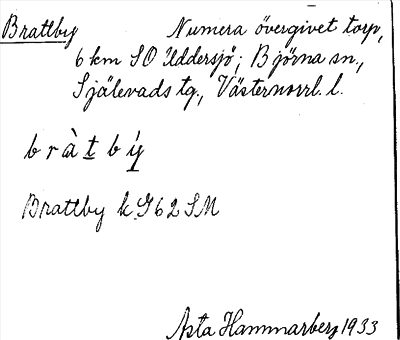 Brattby Numera övergivet torp,
6 km SO Uddersjö; Björna sn.,
Själevads tg., Västernorrl. l.
b r à t b ý
Brattby k. G 62 SM
Asta Hammarberg 1933